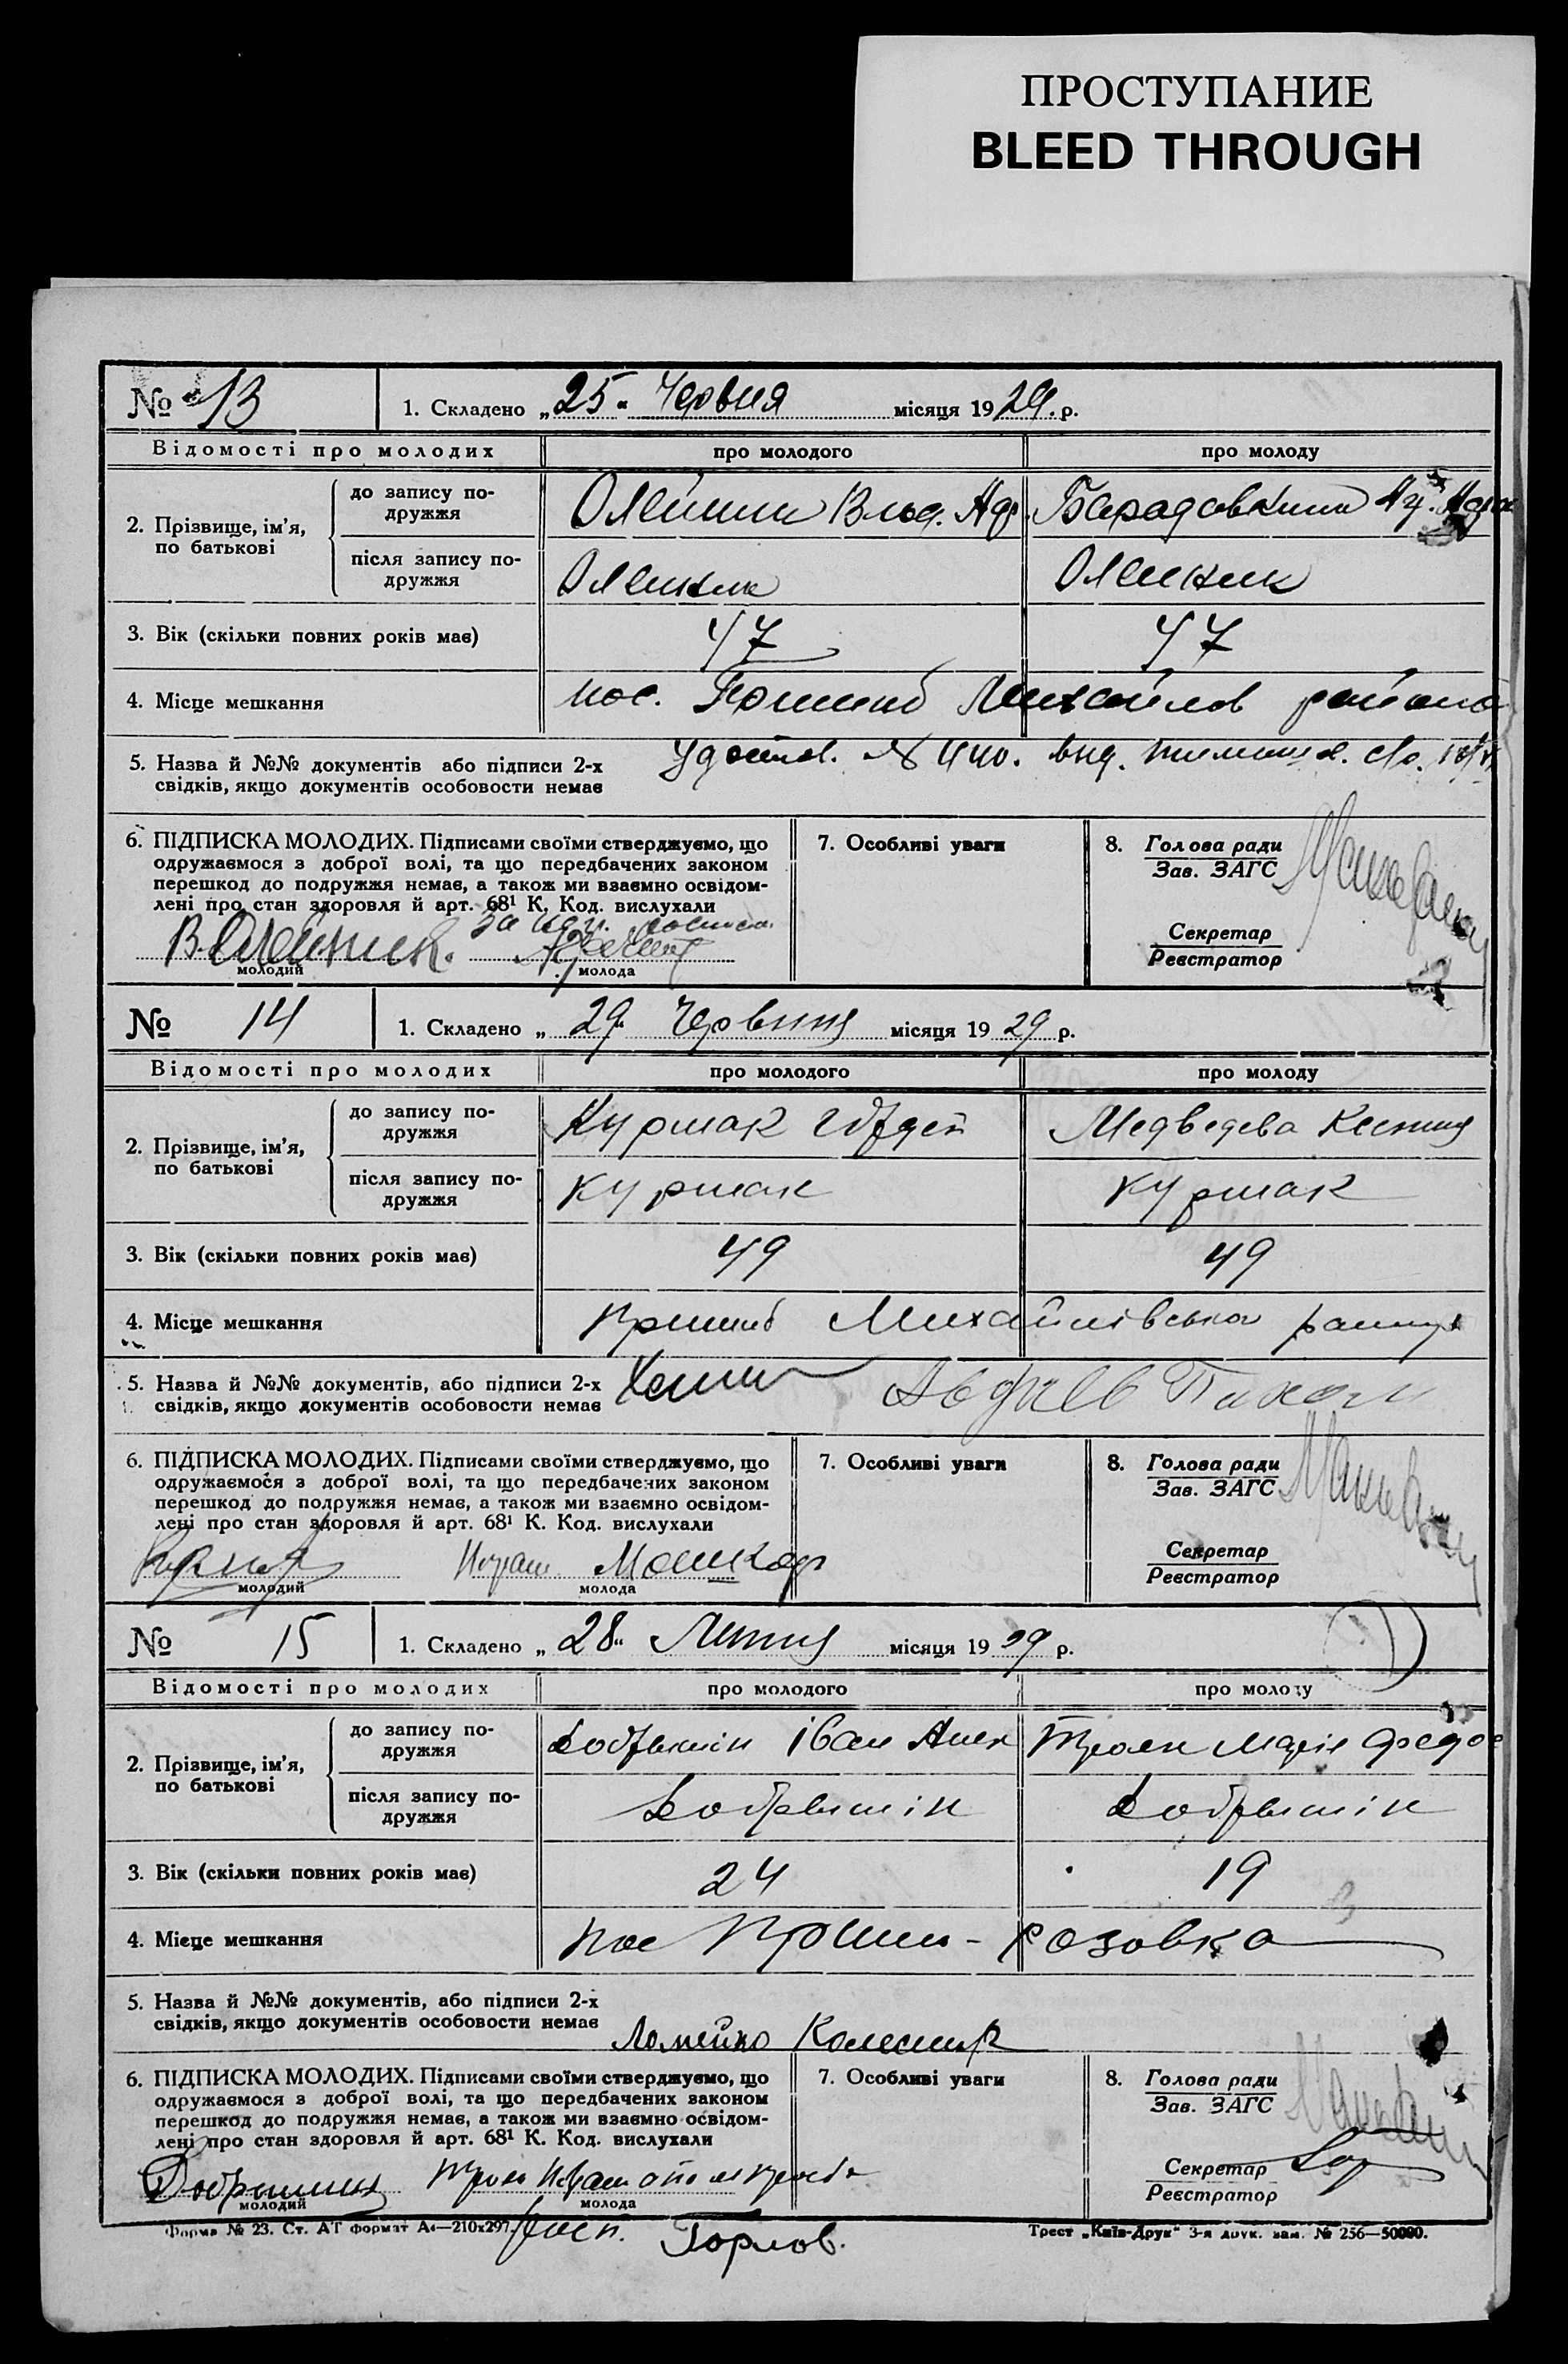 ПРОСТУПАНИЕ
BLEED THROUGH
№ 13
1. Складено „25“ Червня місяця 1929. р.
Відомості про молодих
про молодого
про молоду
2. Прізвище, ім’я, по батькові
до запису подружжя
Олейник Влад.
після запису подружжя
Олейник
Олейник
3. Вік (скільки повних років має)
47
47
4. Місце мешкання
пос. Пришиб Михайлов района
5. Назва й №№ документів або підписи 2-х
свідків, якщо документів особовости немає
Удостов. №
6. ПІДПИСКА МОЛОДИХ. Підписами своїми стверджуємо, що
одружаємося з доброї волі, та що передбачених законом
перешкод до подружжя немає, а також ми взаємно освідом-
лені про стан здоровля й арт. 68¹ К. Код. вислухали
В. Олейник.
молодий
молода
7. Особливі уваги
8. Голова ради
Зав. ЗАГС
Секретар
Реєстратор
№ 14
1. Складено „29“ Червня місяця 1929 р.
Відомості про молодих
про молодого
про молоду
2. Прізвище, ім’я, по батькові
до запису подружжя
Куршак
Медведева Ксения
після запису подружжя
Куршак
Куршак
3. Вік (скільки повних років має)
49
49
4. Місце мешкання
Пришиб Михайлівського району
5. Назва й №№ документів, або підписи 2-х
свідків, якщо документів особовости немає
6. ПІДПИСКА МОЛОДИХ. Підписами своїми стверджуємо, що
одружаємося з доброї волі, та що передбачених законом
перешкод до подружжя немає, а також ми взаємно освідом-
лені про стан здоровля й арт. 68¹ К. Код. вислухали
молодий
молода
7. Особливі уваги
8. Голова ради
Зав. ЗАГС
Секретар
Реєстратор
№ 15
1. Складено „28“ Липня місяця 1929 р.
Відомості про молодих
про молодого
про молоду
2. Прізвище, ім’я, по батькові
до запису подружжя
Добришін Іван Алек
Троян Марія Федос
після запису подружжя
Добришін
Добришін
3. Вік (скільки повних років має)
24
19
4. Місце мешкання
пос Пришиб - Розовка
5. Назва й №№ документів, або підписи 2-х
свідків, якщо документів особовости немає
Ломейко Колесник
6. ПІДПИСКА МОЛОДИХ. Підписами своїми стверджуємо, що
одружаємося з доброї волі, та що передбачених законом
перешкод до подружжя немає, а також ми взаємно освідом-
лені про стан здоровля й арт. 68¹ К. Код. вислухали
Добришин
молодий
молода
7. Особливі уваги
8. Голова ради
Зав. ЗАГС
Секретар
Реєстратор
Форма № 23. Ст. АТ формат А₄—210х297.
Горлов.
Трест „Київ-Друк“ 3-я друк. зам. № 256—50000.